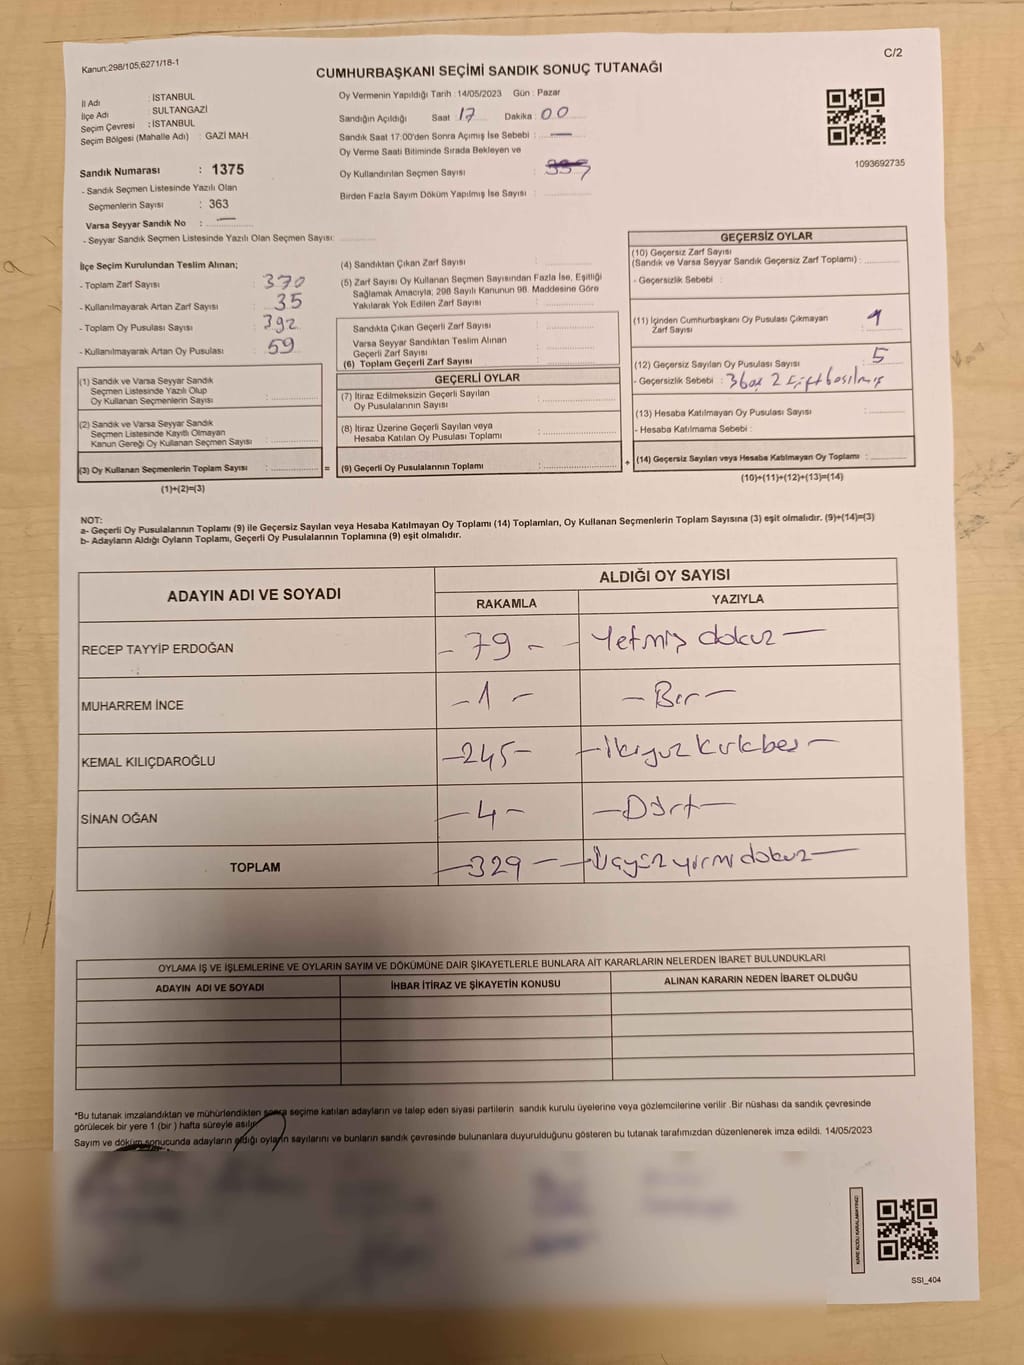 Kanun:298/105,6271/18-1
C/2
CUMHURBAŞKANI SEÇİMİ SANDIK SONUÇ TUTANAĞI
İl Adı : İSTANBUL
İlçe Adı : SULTANGAZİ
Seçim Çevresi : İSTANBUL
Seçim Bölgesi (Mahalle Adı) : GAZİ MAH.
Sandık Numarası : 1375
- Sandık Seçmen Listesinde Yazılı Olan
Seçmenlerin Sayısı : 363
Varsa Seyyar Sandık No : —
- Seyyar Sandık Seçmen Listesinde Yazılı Olan Seçmen Sayısı:
Oy Vermenin Yapıldığı Tarih :14/05/2023 Gün : Pazar
Sandığın Açıldığı Saat : 17 Dakika : 00
Sandık Saat 17:00'den Sonra Açılmış İse Sebebi : —
Oy Verme Saati Bitiminde Sırada Bekleyen ve
Oy Kullandırılan Seçmen Sayısı :
Birden Fazla Sayım Döküm Yapılmış İse Sayısı :
1093692735
İlçe Seçim Kurulundan Teslim Alınan;
- Toplam Zarf Sayısı : 370
- Kullanılmayarak Artan Zarf Sayısı : 35
- Toplam Oy Pusulası Sayısı : 392
- Kullanılmayarak Artan Oy Pusulası : 59
(1) Sandık ve Varsa Seyyar Sandık
Seçmen Listesinde Yazılı Olup
Oy Kullanan Seçmenlerin Sayısı :
(2) Sandık ve Varsa Seyyar Sandık
Seçmen Listesinde Kayıtlı Olmayan
Kanun Gereği Oy Kullanan Seçmen Sayısı :
(3) Oy Kullanan Seçmenlerin Toplam Sayısı :
(1)+(2)=(3)
(4) Sandıktan Çıkan Zarf Sayısı :
(5) Zarf Sayısı Oy Kullanan Seçmen Sayısından Fazla İse, Eşitliği
Sağlamak Amacıyla; 298 Sayılı Kanunun 98. Maddesine Göre
Yakılarak Yok Edilen Zarf Sayısı :
Sandıkta Çıkan Geçerli Zarf Sayısı :
Varsa Seyyar Sandıktan Teslim Alınan
Geçerli Zarf Sayısı :
(6) Toplam Geçerli Zarf Sayısı :
GEÇERLİ OYLAR
(7) İtiraz Edilmeksizin Geçerli Sayılan
Oy Pusulalarının Sayısı :
(8) İtiraz Üzerine Geçerli Sayılan veya
Hesaba Katılan Oy Pusulası Toplamı :
= (9) Geçerli Oy Pusulalarının Toplamı :
GEÇERSİZ OYLAR
(10) Geçersiz Zarf Sayısı
(Sandık ve Varsa Seyyar Sandık Geçersiz Zarf Toplamı) :
- Geçersizlik Sebebi :
(11) İçinden Cumhurbaşkanı Oy Pusulası Çıkmayan
Zarf Sayısı : 1
(12) Geçersiz Sayılan Oy Pusulası Sayısı : 5
- Geçersizlik Sebebi : 3 boş 2 çift basılmış
(13) Hesaba Katılmayan Oy Pusulası Sayısı :
- Hesaba Katılmama Sebebi :
+ (14) Geçersiz Sayılan veya Hesaba Katılmayan Oy Toplamı :
(10)+(11)+(12)+(13)=(14)
NOT:
a- Geçerli Oy Pusulalarının Toplamı (9) ile Geçersiz Sayılan veya Hesaba Katılmayan Oy Toplamı (14) Toplamları, Oy Kullanan Seçmenlerin Toplam Sayısına (3) eşit olmalıdır. (9)+(14)=(3)
b- Adayların Aldığı Oyların Toplamı, Geçerli Oy Pusulalarının Toplamına (9) eşit olmalıdır.
ADAYIN ADI VE SOYADI
ALDIĞI OY SAYISI
RAKAMLA YAZIYLA
RECEP TAYYİP ERDOĞAN – 79 – – Yetmiş dokuz –
MUHARREM İNCE – 1 – – Bir –
KEMAL KILIÇDAROĞLU – 245 – – İkiyüz kırkbeş –
SİNAN OĞAN – 4 – – Dört –
TOPLAM – 329 – – Üçyüz yirmi dokuz –
OYLAMA İŞ VE İŞLEMLERİNE VE OYLARIN SAYIM VE DÖKÜMÜNE DAİR ŞİKAYETLERLE BUNLARA AİT KARARLARIN NELERDEN İBARET BULUNDUKLARI
ADAYIN ADI VE SOYADI İHBAR İTİRAZ VE ŞİKAYETİN KONUSU ALINAN KARARIN NEDEN İBARET OLDUĞU
*Bu tutanak imzalandıktan ve mühürlendikten sonra seçime katılan adayların ve talep eden siyasi partilerin sandık kurulu üyelerine veya gözlemcilerine verilir .Bir nüshası da sandık çevresinde
görülecek bir yere 1 (bir ) hafta süreyle asılır.
Sayım ve döküm sonucunda adayların aldığı oyların sayılarını ve bunların sandık çevresinde bulunanlara duyurulduğunu gösteren bu tutanak tarafımızdan düzenlenerek imza edildi. 14/05/2023
KARE KODU KARALAMAYINIZ!
SSI_404